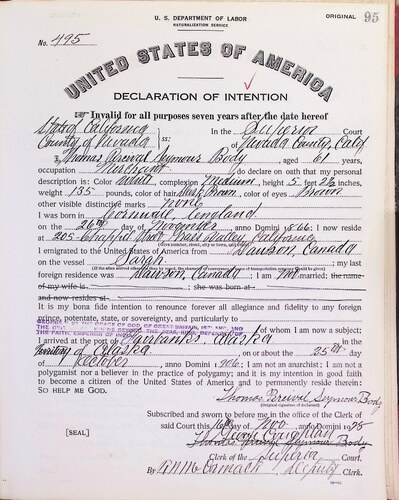 U. S. DEPARTMENT OF LABOR
NATURALIZATION SERVICE
ORIGINAL 95
No. 495
UNITED STATES OF AMERICA
DECLARATION OF INTENTION
Invalid for all purposes seven years after the date hereof
State of California
County of Nevada ss: In the Superior Court
of Nevada County, Calif
I, Thomas Percival Seymour Body, aged 61 years,
occupation Merchant, do declare on oath that my personal
description is: Color White, complexion Medium, height 5 feet inches,
weight 135 pounds, color of hair Dark Brown, color of eyes Brown
other visible distinctive marks none
I was born in Cornwall, England
on the 26th day of November, anno Domini 1866; I now reside
at 205 Street Grass Valley, California
I emigrated to the United States of America from Dawson, Canada
on the vessel Sarah; my last
foreign residence was Dawson, Canada; I am not married; the name
of my wife is; she was born at
and now resides at
It is my bona fide intention to renounce forever all allegiance and fidelity to any foreign
prince, potentate, state, or sovereignty, and particularly to
of whom I am now a subject;
I arrived at the port of Fairbanks, Alaska, in the
Territory of Alaska, on or about the 25th day
of October, anno Domini 1906; I am not an anarchist; I am not a
polygamist nor a believer in the practice of polygamy; and it is my intention in good faith
to become a citizen of the United States of America and to permanently reside therein:
SO HELP ME GOD.
Thomas Percival Seymour Body
Subscribed and sworn to before me in office of the Clerk of
said Court this 16th day of Nov anno Domini
Thomas Percival Seymour Body
[SEAL]
Clerk of the Superior Court.
By Deputy Clerk.